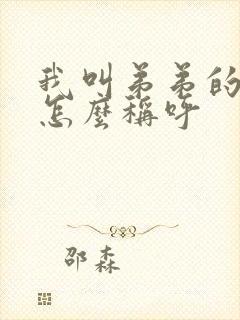 我叫弟弟的
怎麼稱呼
邵森